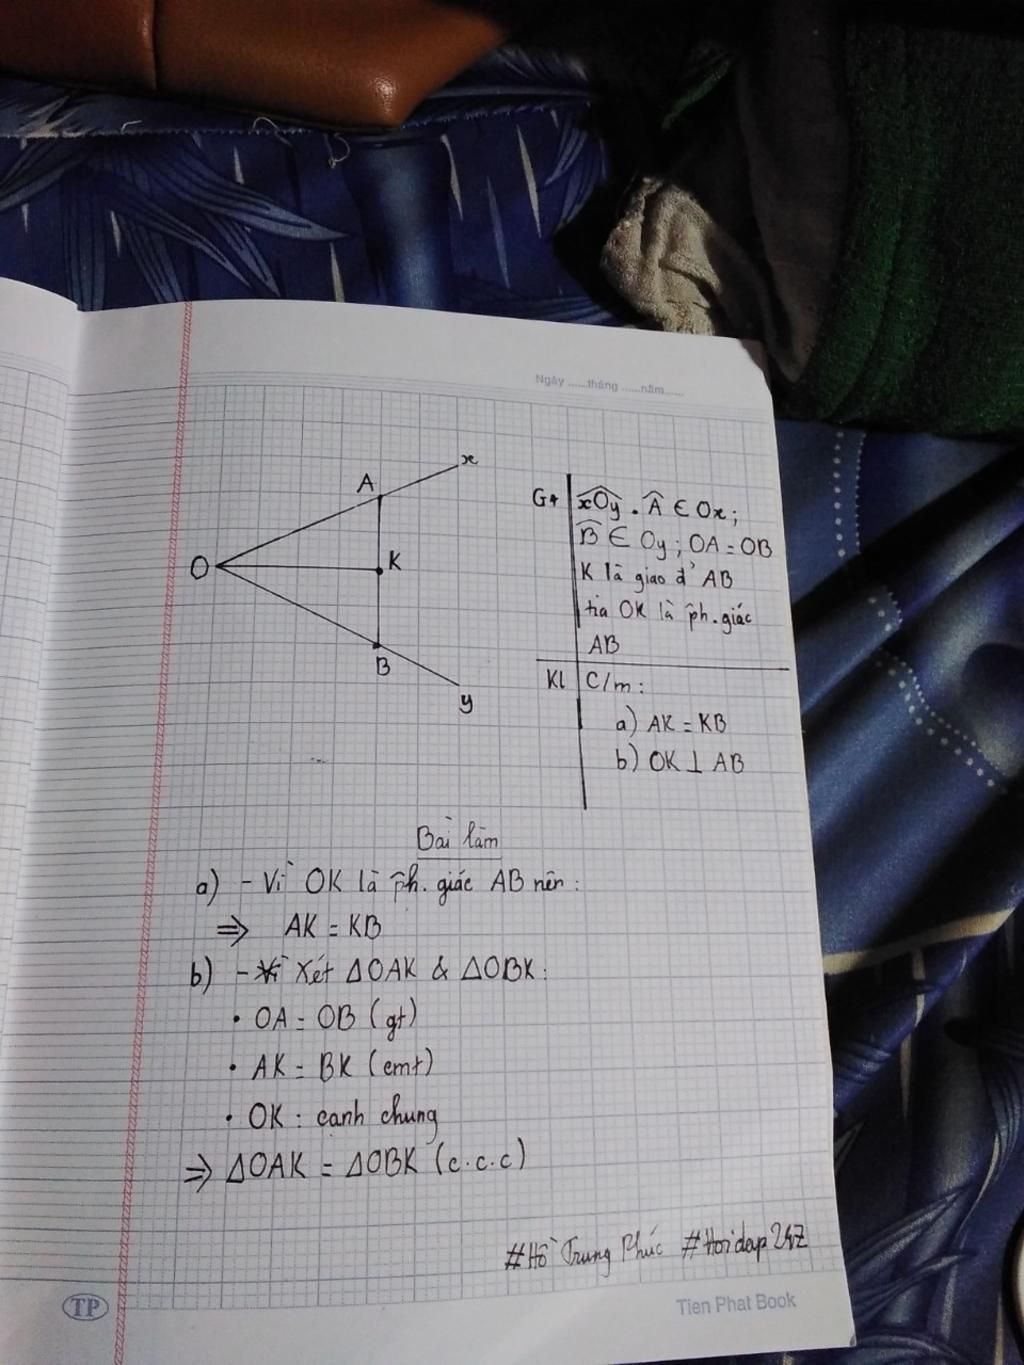 Ngày ......tháng ......năm......
x
A
O
K
B
y
Gt xOy . A ∈ Ox ;
B ∈ Oy ; OA = OB
K là giao đ' AB
tia OK là ph.giác
AB
Kl C/m :
a) AK = KB
b) OK ⊥ AB
Bài làm
a) - Vì OK là ph. giác AB nên :
⇒ AK = KB
b) - Xét ΔOAK & ΔOBK :
• OA = OB (gt)
• AK = BK (cmt)
• OK : canh chung
⇒ ΔOAK = ΔOBK (c.c.c)
#Hồ Trung Phúc #Hoidap247
TP
Tien Phat Book